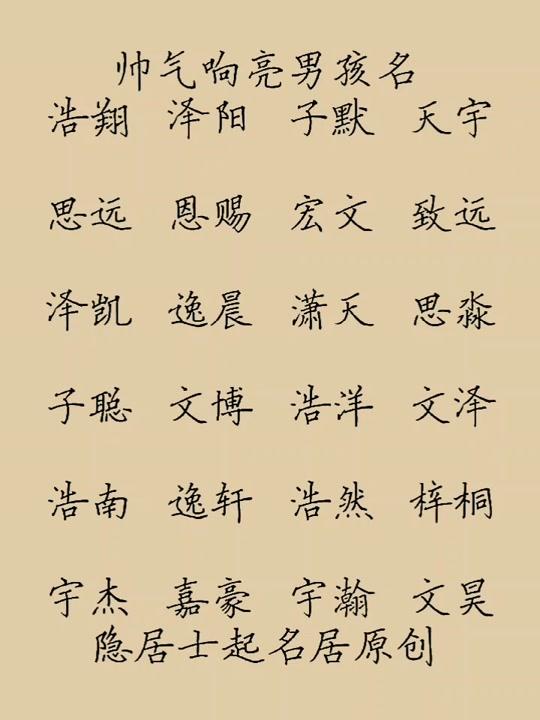 帅气响亮男孩名
浩翔 泽阳 子默 天宇
思远 恩赐 宏文 致远
泽凯 逸晨 潇天 思淼
子聪 文博 浩洋 文泽
浩南 逸轩 浩然 梓桐
宇杰 嘉豪 宇瀚 文昊
隐居士起名居原创